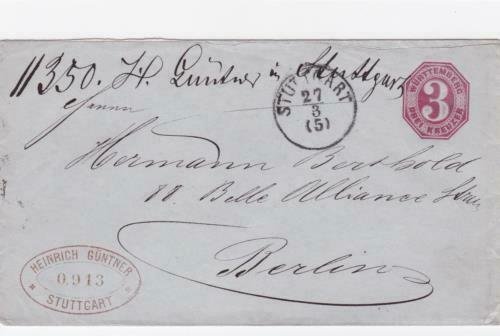 11350. H. Güntner in Stuttgart
Herrn
Hermann Berthold
88. Belle Alliance Stras
Berlin
STUTTGART
27
3
(5)
WÜRTTEMBERG
3
DREI KREUZER
HEINRICH GÜNTNER
0.913
STUTTGART